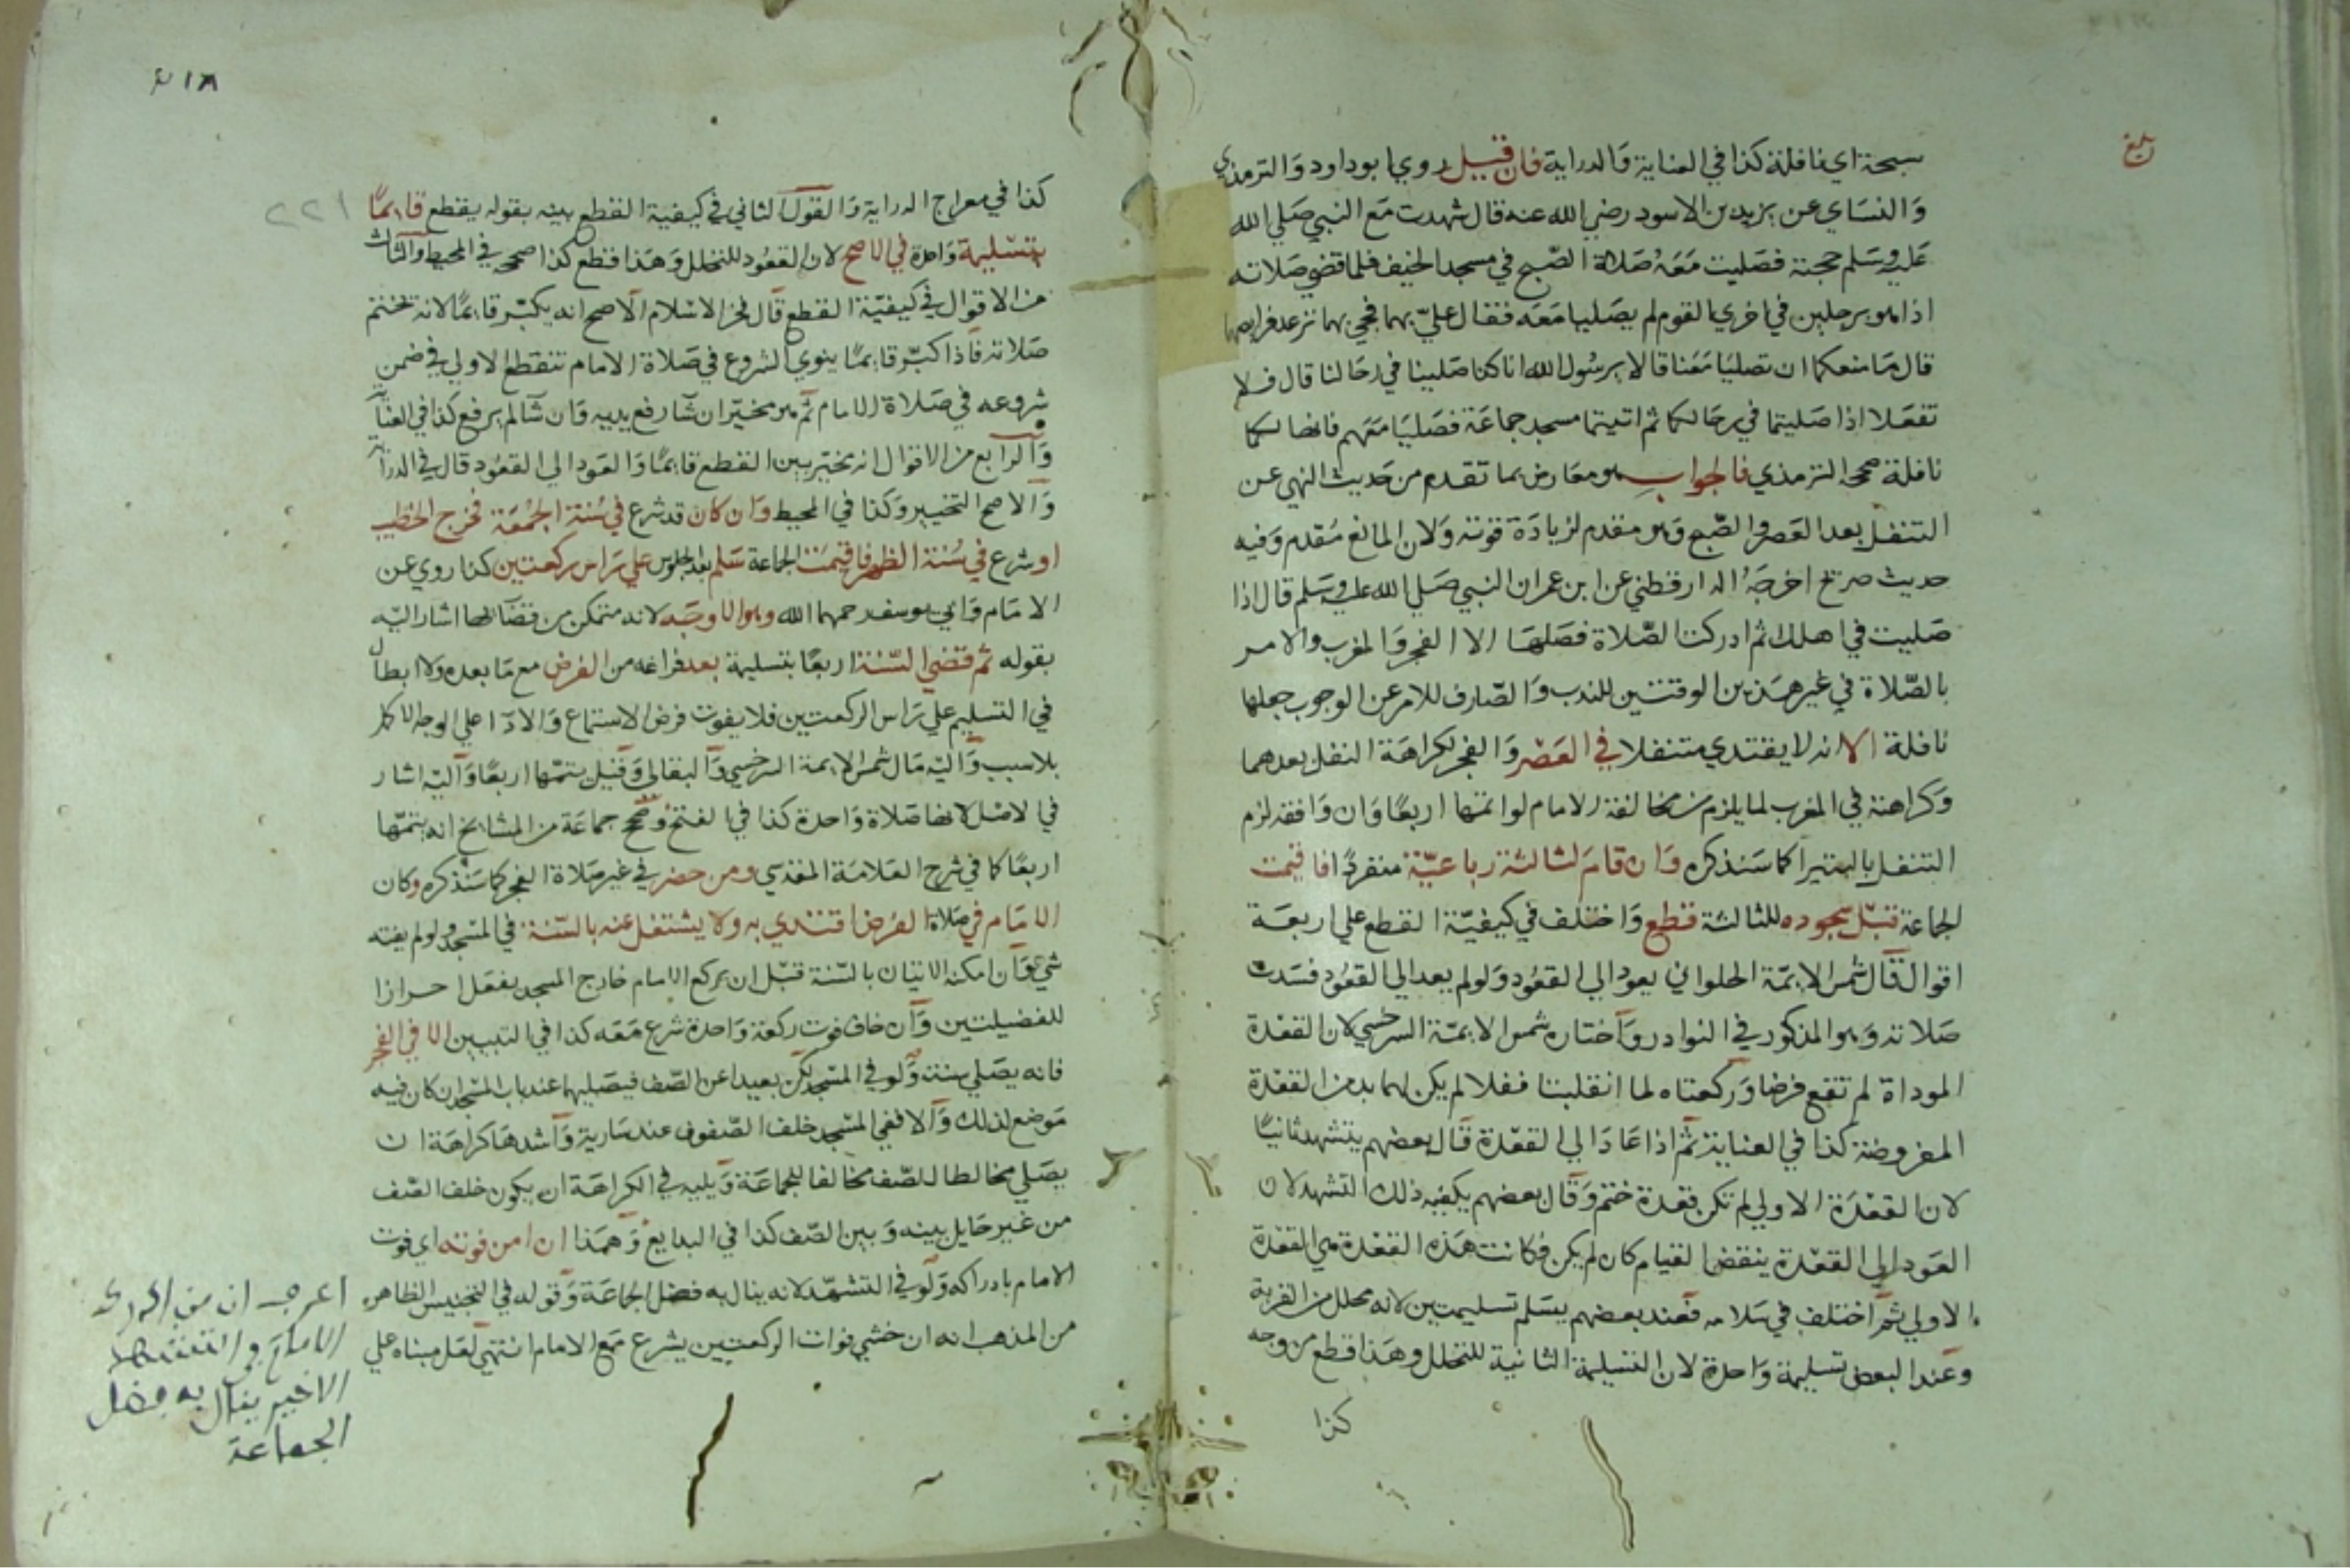 بلغ
سبحة اي نافلة كذا في العناية والدراية فان قيل روي ابو داود والترمذي
والنساي عن يزيد بن الاسود رضي الله عنه قال شهدت مع النبي صلي الله
عليه وسلم حجته فصليت معه صلاة الصبح في مسجد الخيف فلما قضي صلاته
اذا هو برجلين في اخري القوم لم يصليا معه فقال علي بهما فجي بهما ترعد فرايصهما
قال ما منعكما ان تصليا معنا قالا يرسول الله انا كنا صلينا في رحالنا قال فلا
تفعلا اذا صليتما في رحالكما ثم اتيتما مسجد جماعة فصليا معهم فانها لكما
نافلة صححه الترمذي فالجواب هو معارض بما تقدم من حديث النهي عن
التنفل بعد العصر والصبح وهو مقدم لزيادة قوته ولان المانع مقدم وفيه
حديث صريح اخرجه الدارقطني عن ابن عمر ان النبي صلي الله عليه وسلم قال اذا
صليت في اهلك ثم ادركت الصلاة فصلها الا الفجر والمغرب والامر
بالصلاة في غير هذين الوقتين للندب والصارف للامر عن الوجوب جعلها
نافلة الا انه لا يقتدي متنفلا في العصر والفجر لكراهة النفل بعدهما
وكراهته في المغرب لما يلزم من مخالفة الامام لو اتمها اربعا وان وافقه لزم
التنفل بالبتيرا كما سنذكره وان قام لثالثة رباعية منفردا فاقيمت
الجماعة قبل سجوده للثالثة قطع واختلف في كيفية القطع علي اربعة
اقوال قال شمس الايمة الحلواني يعود الي القعود ولو لم يعد الي القعود فسدت
صلاته وهو المذكور في النوادر واختاره شمس الايمة السرخسي لان القعدة
الموداة لم تقع فرضا وركعتاه لما انقلبتا نفلا لم يكن لهما بد من القعدة
المفروضة كذا في العناية ثم اذا عاد الي القعدة قال بعضهم يتشهد ثانيا
لان القعدة الاولي لم تكن قعدة ختم وقال بعضهم يكفيه ذلك التشهد لان
العود الي القعدة ينقض القيام كان لم يكن فكانت هذه القعدة هي القعدة
الاولي ثم اختلف في سلامه فعند بعضهم يسلم تسليمتين لانه محلل من القربة
وعند البعض تسليمة واحدة لان التسليمة الثانية للتحلل وهذا قطع من وجه
كذا
٢١٨
٢٢١
كذا في معراج الدراية والقول الثاني في كيفية القطع بينه بقوله يقطع قايما
بتسليمة واحدة في الاصح لان القعود للتحلل وهذا قطع كذا صححه في المحيط والثالث
من الاقوال في كيفية القطع قال فخر الاسلام الاصح انه يكبر قايما لانه تختتم
صلاته فاذا كبر قايما ينوي الشروع في صلاة الامام تنقطع الاولي في ضمن
شروعه في صلاة الامام ثم هو مخير ان شا رفع يديه وان شا لم يرفع كذا في العناية
والرابع من الاقوال انه يخير بين القطع قايما والعود الي القعود قال في الدراية
والاصح التخيير وكذا في المحيط وان كان قد شرع في سنة الجمعة فخرج الخطيب
او شرع في سنة الظهر فاقيمت الجماعة سلم بعد الجلوس علي راس ركعتين كذا روي عن
الامام وابي يوسف رحمهما الله وهو الاوجه لانه متمكن من قضائها اشار اليه
بقوله ثم قضي السنة اربعا بتسليمة بعد فراغه من الفرض مع ما بعده ولا ابطال
في التسليم علي راس الركعتين فلا يفوت فرض الاستماع والادا علي الوجه الاكمل
بلا سبب واليه مال شمس الايمة السرخسي والبقالي وقيل يتمها اربعا واليه اشار
في الاصل لانها صلاة واحدة كذا في الفتح وصحح جماعة من المشايخ انه يتمها
اربعا كما في شرح العلامة المقدسي ومن حضر في غير صلاة الفجر كما سنذكره وكان
الامام في صلاة الفرض اقتدي به ولا يشتغل عنه بالسنة في المسجد ولو لم يفته
شي وان امكنه الاتيان بالسنة قبل ان يركع الامام خارج المسجد يفعل احرازا
للفضيلتين وان خاف فوت ركعة واحدة شرع معه كذا في التبيين الا في الفجر
فانه يصلي سنته ولو في المسجد لكن بعيدا عن الصف فيصليها عند باب المسجد ان كان فيه
موضع لذلك والا ففي المسجد خلف الصفوف عند سارية واشدها كراهة ان
يصلي مخالطا للصف مخالفا للجماعة ويليه في الكراهة ان يكون خلف الصف
من غير حايل بينه وبين الصف كذا في البدايع وهذا ان امن فوته اي فوت
الامام بادراكه ولو في التشهد لانه ينال به فضل الجماعة وقوله في التجنيس الظاهر
من المذهب انه ان خشي فوات الركعتين يشرع مع الامام انتهي لعل مبناه علي
اعرف ان من ادرك
الامام في التشهد
الاخير ينال به فضل
الجماعة